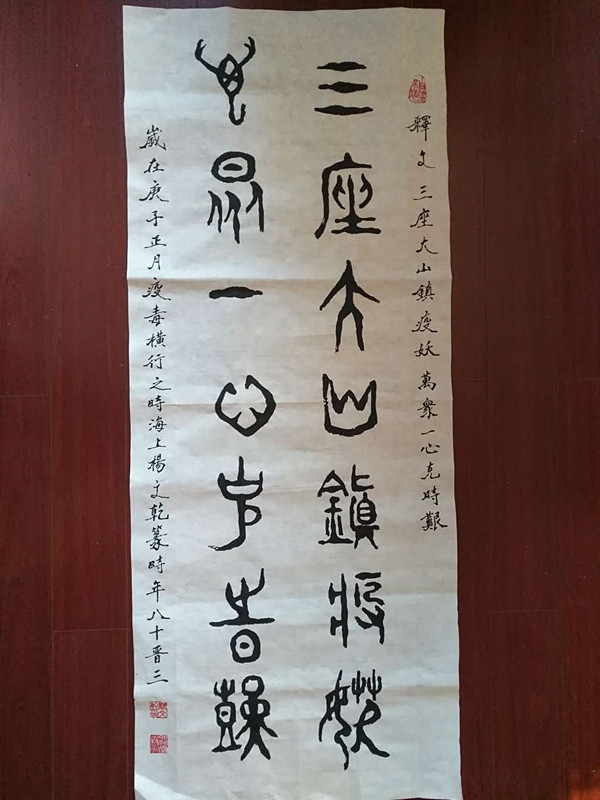 釋文 三座大山鎮疫妖 萬衆一心克時艱
三座大山鎮疫妖
萬衆一心克時艱
歲在庚子正月疫毒橫行之時海上楊文乾篆時年八十晋三